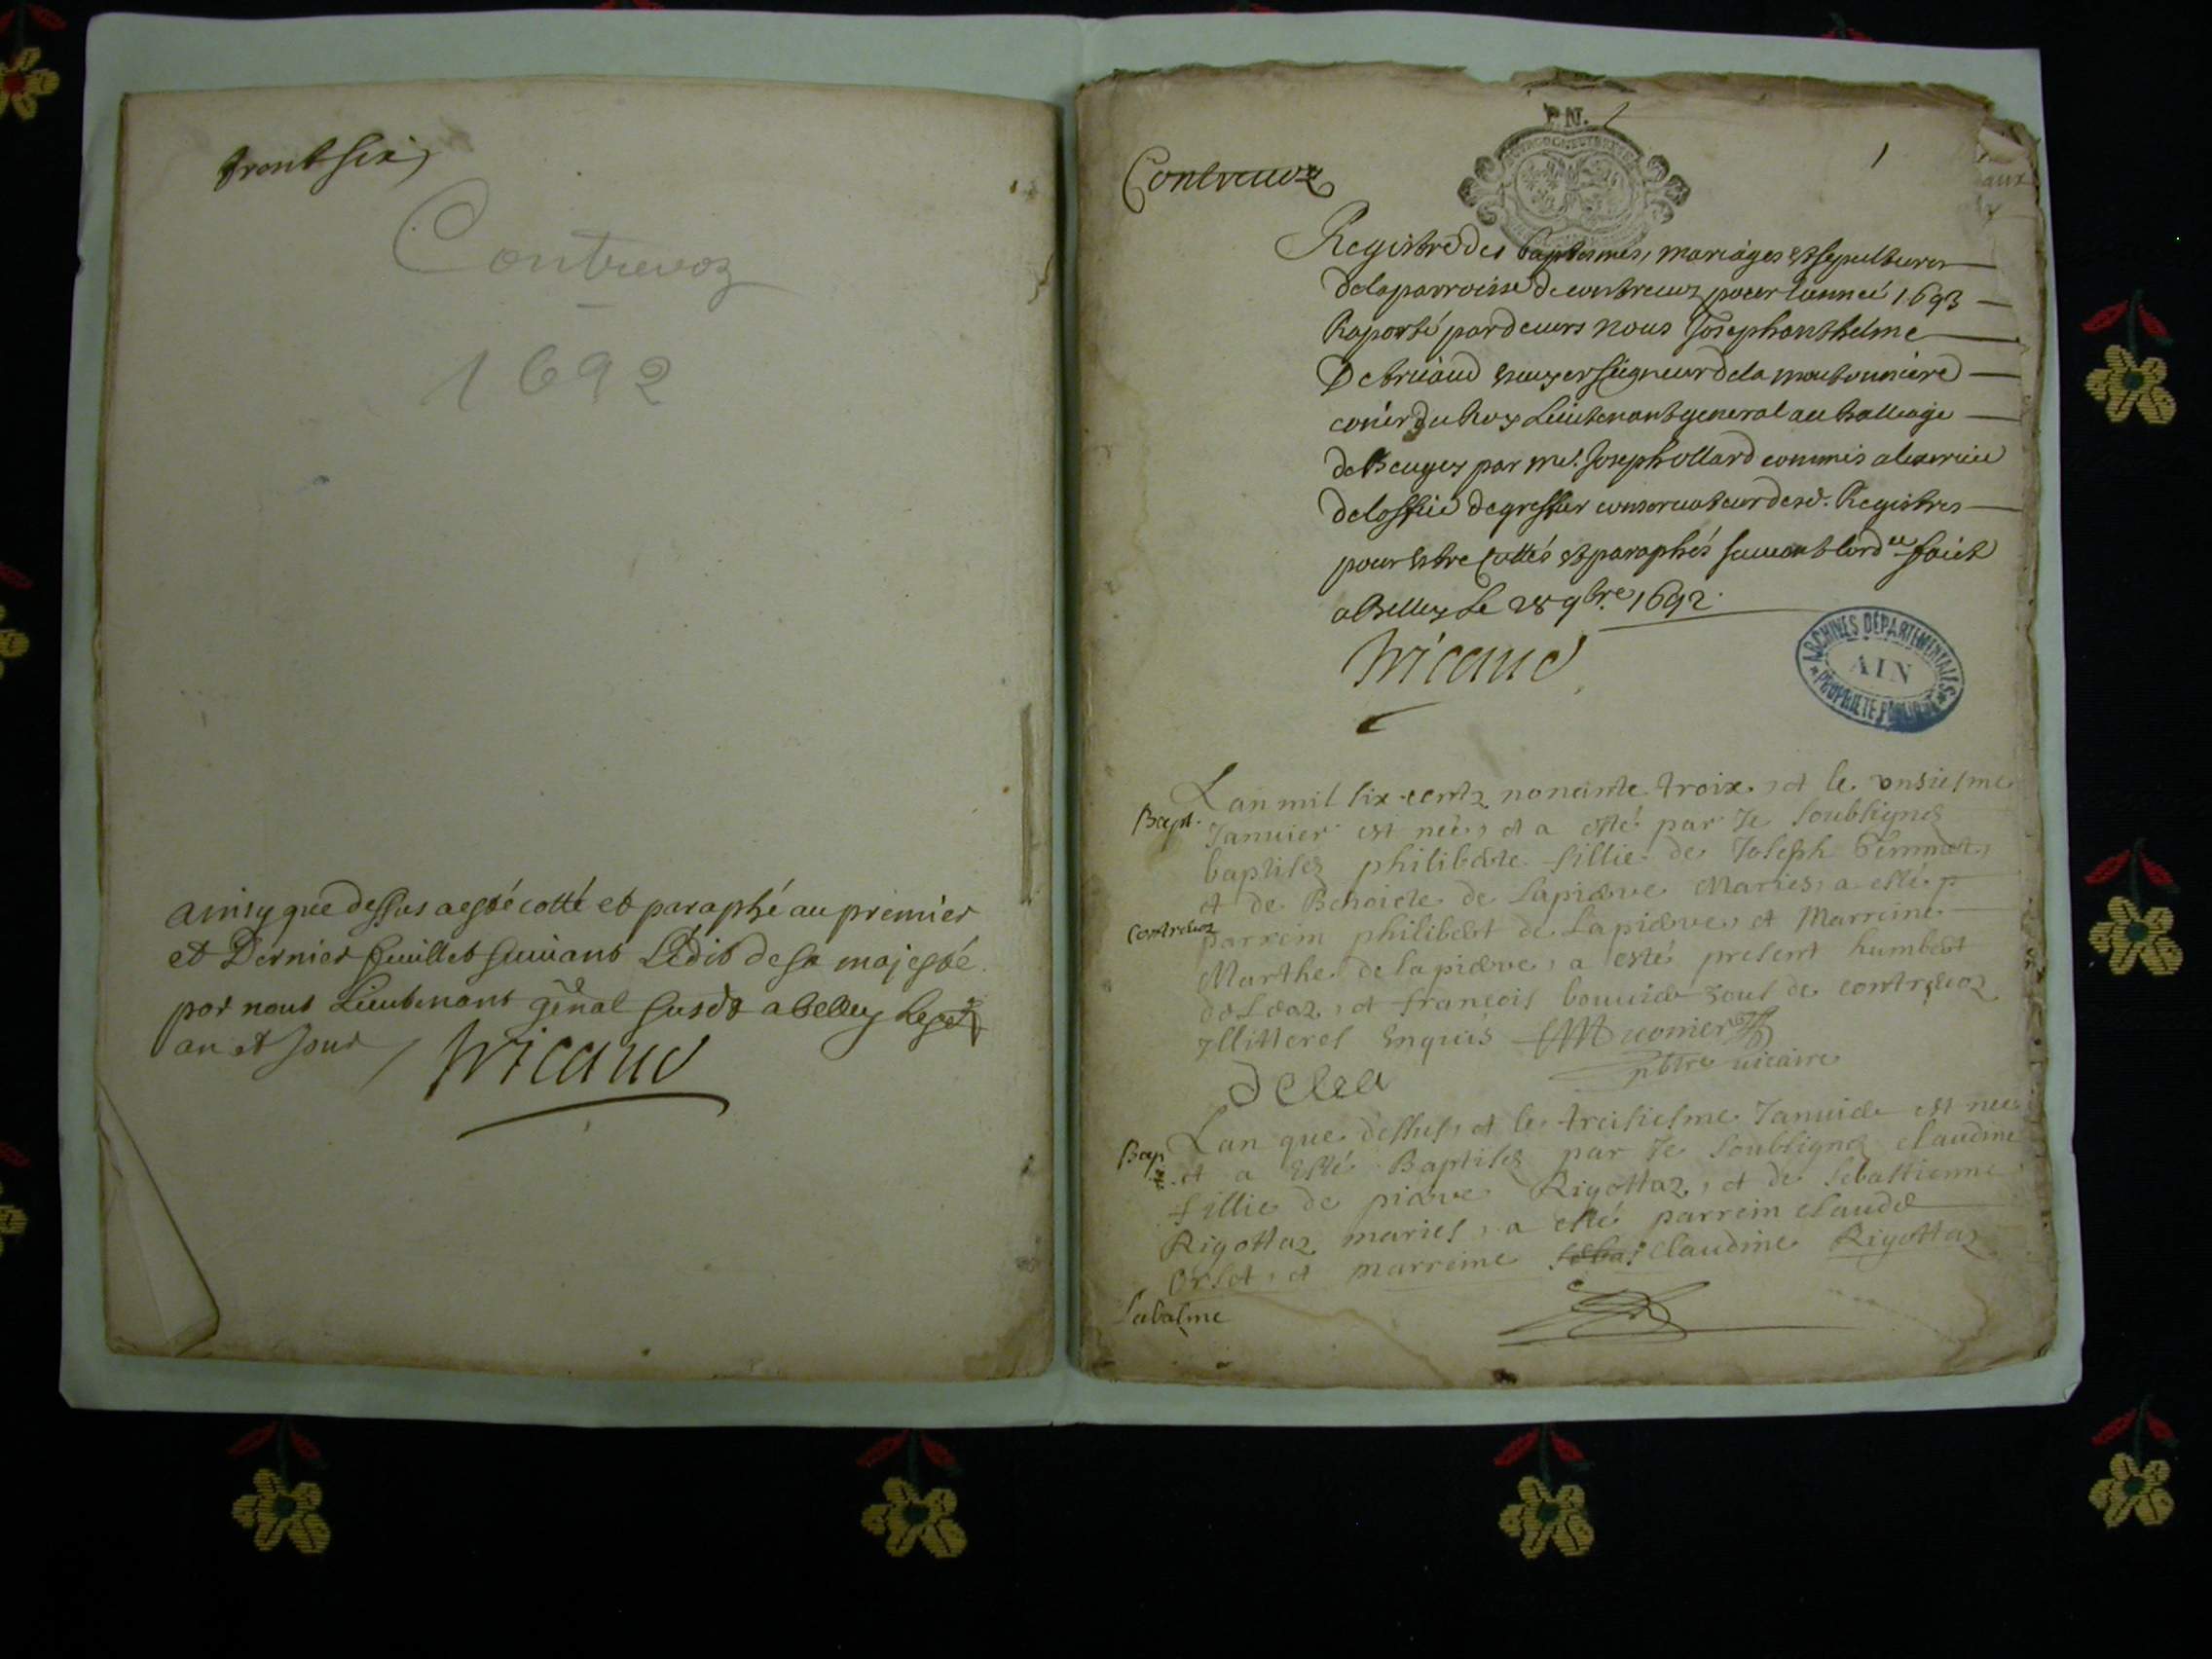 trentsix
Contrevoz
1692
ainsy que dessus a esté cotté et paraphé au premier
et Dernier feuillet suivant L'édit de sa majesté
par nous Lieutenant général susdt a belley les
an et jour
Bricaud
P.N.
1
Contrevoz
Registre des baptesmes, mariages et sepultures
de la parroisse de contrevoz pour lannée 1693
Raporté pardevers nous Joseph anthelme
De bricaud escuyer seigneur de la moutonniere
coner du Roy Lieutenant general au Balliage
de Beugey par me. Joseph ollard commis a lexercice
de loffice de greffier conservateur desd. Registres
pour estre cottés et paraphés suivant lordce faict
a Belley Le 28 9bre 1692
Bricaud
ARCHIVES DÉPARTEMENTALES
AIN
PROPRIETE PUBLIQUE
Lan mil six centz nonante troix, et le onsiesme
Bapt.
Januier est née, et a esté par Je soubsignez
baptisez philiberte fillie de Joseph
et de Benoicte de Lapierre Maries, a esté p
Contrevoz
parrein philibert de Lapierre, et Marreine
Marthe de lapierre, a esté present humbert
et francois bouvier tous de contrevoz
yllitteres Enquis
pbtre vicaire
Lan que dessus, et le treisiesme Januier est nee
Bap
et a Esté Baptisez par Je soubsignez claudine
fillie de pierre Rigottaz, et de sebastienne
Rigottaz maries, a esté parrein claude
Orset, et marreine seba: claudine Rigottaz
Labalme